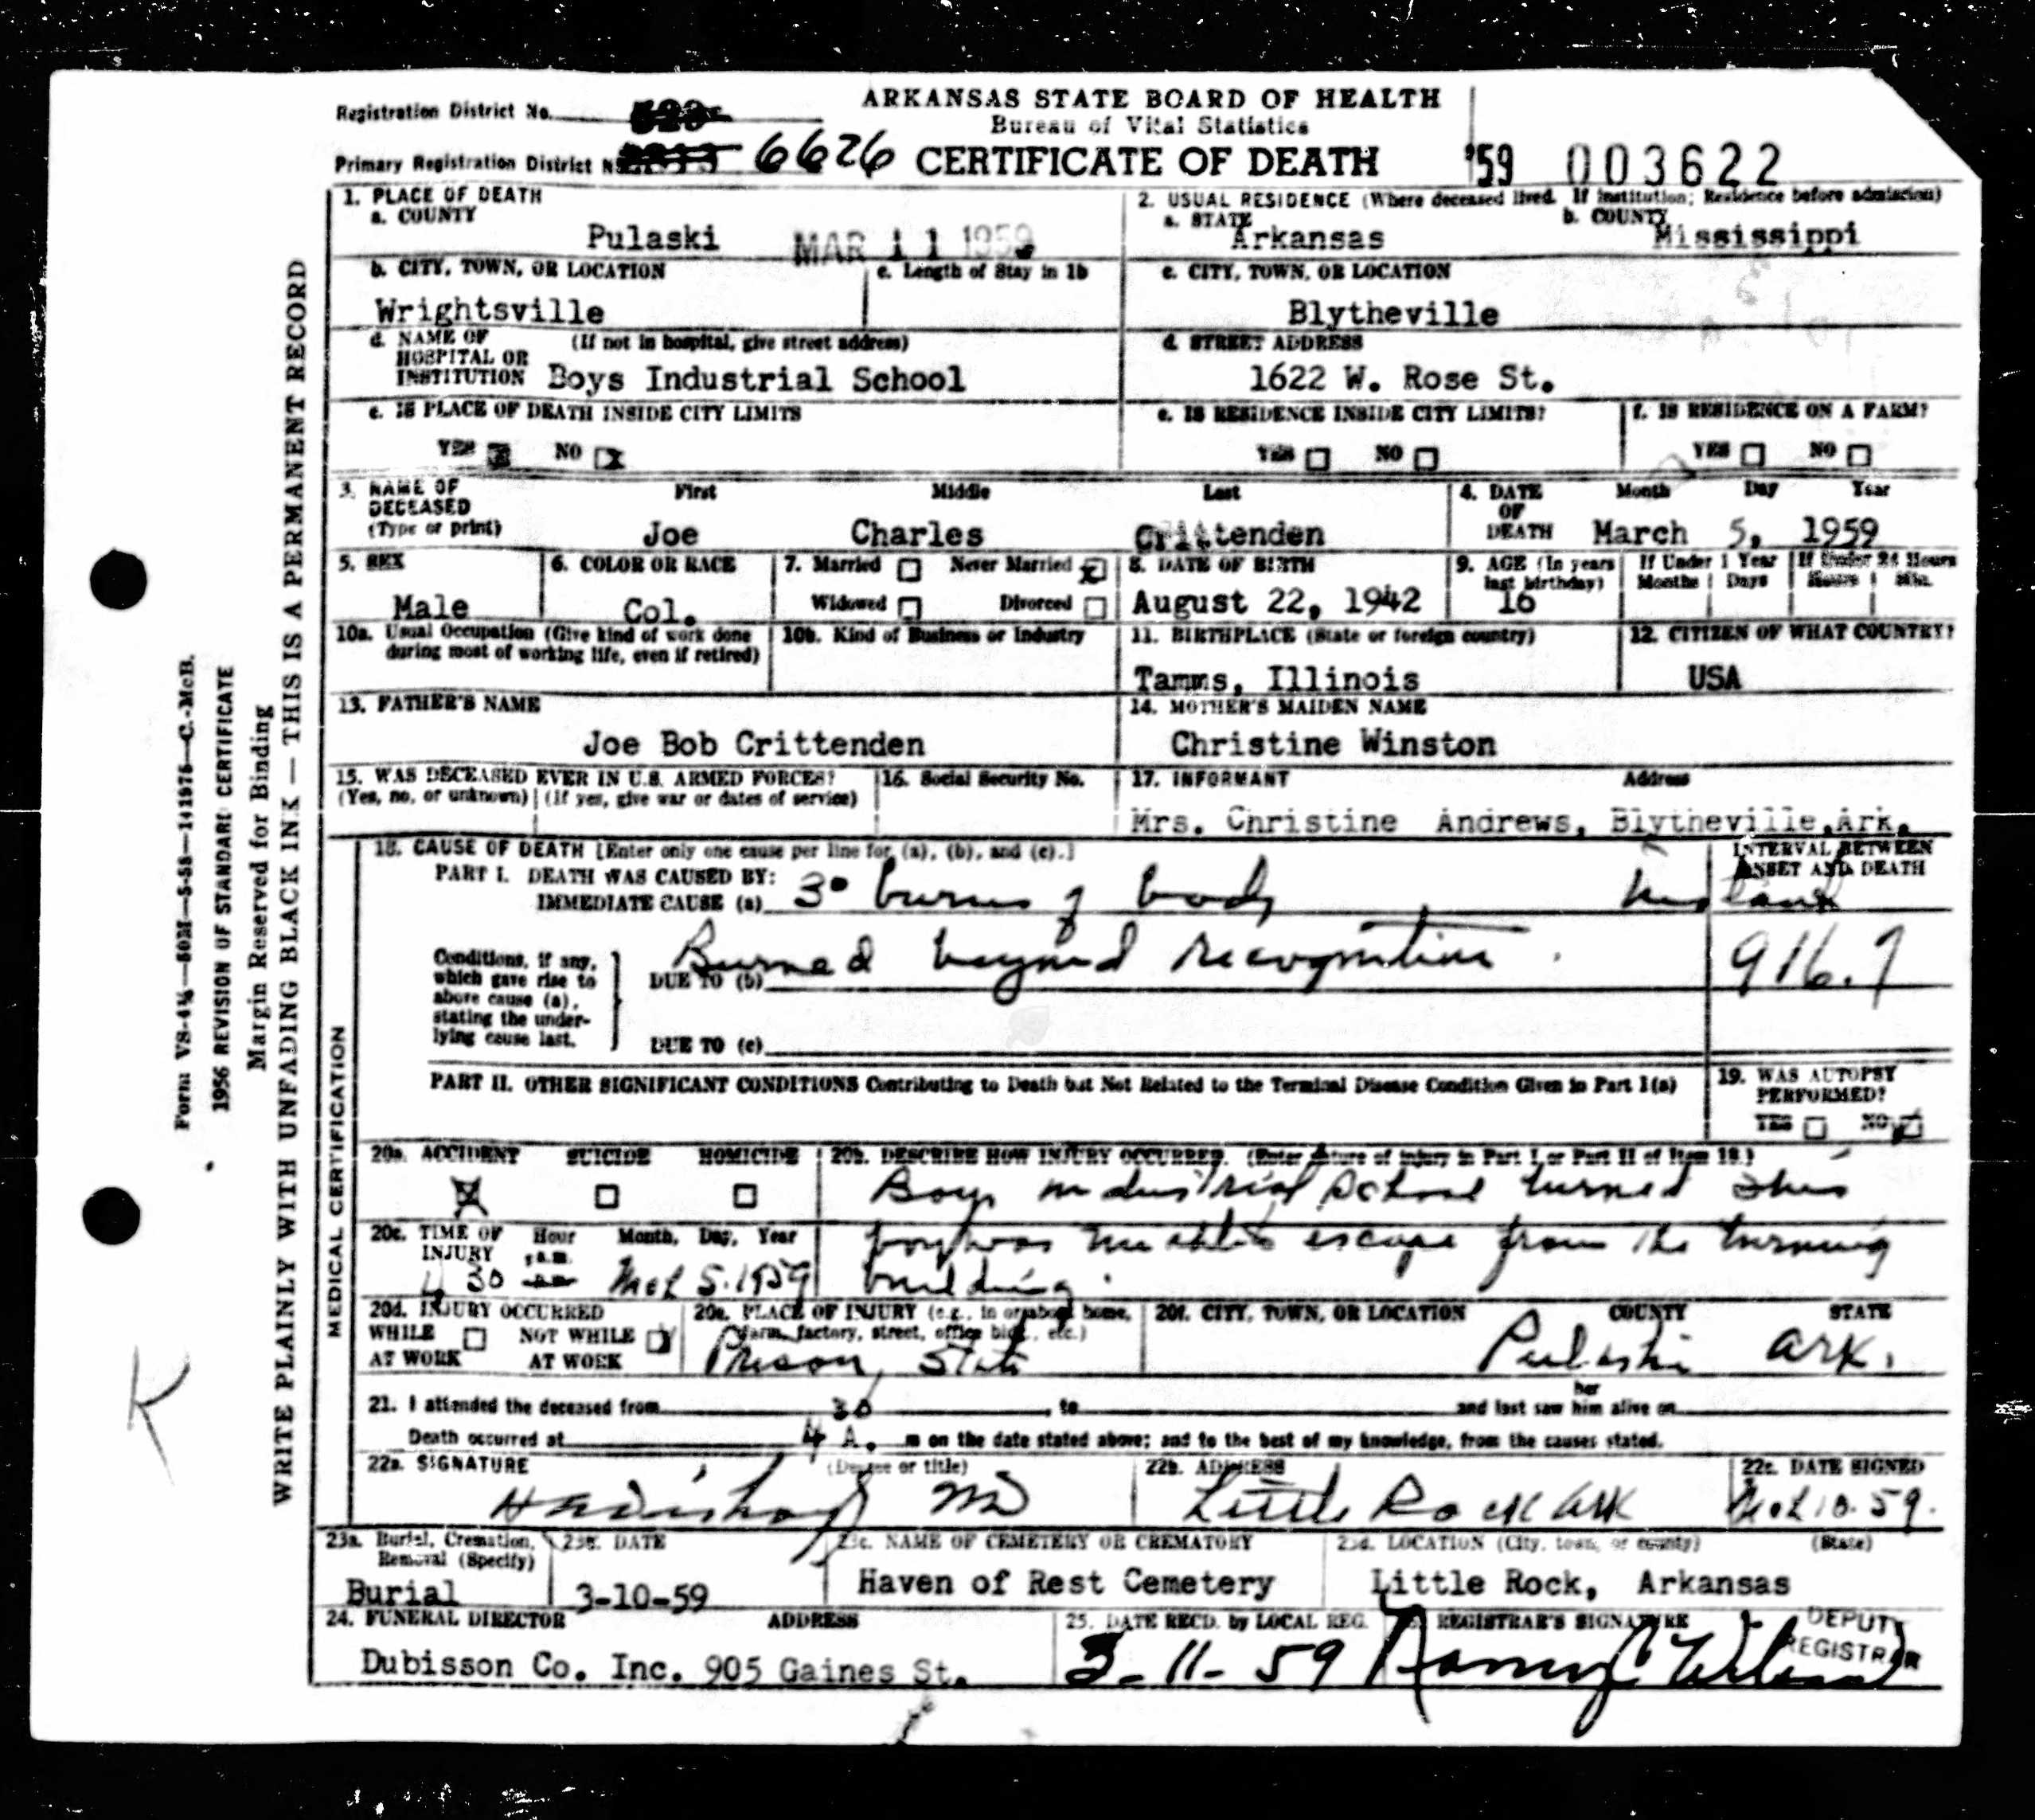 ARKANSAS STATE BOARD OF HEALTH
Bureau of Vital Statistics
CERTIFICATE OF DEATH
Registration District No.
Primary Registration District No. 6626
'59 003622
1. PLACE OF DEATH
a. COUNTY
Pulaski
MAR 11 1959
2. USUAL RESIDENCE (Where deceased lived. If institution; Residence before admission)
a. STATE
Arkansas
b. COUNTY
Mississippi
b. CITY, TOWN, OR LOCATION
Wrightsville
c. Length of Stay in 1b
c. CITY, TOWN, OR LOCATION
Blytheville
d. NAME OF HOSPITAL OR INSTITUTION
(If not in hospital, give street address)
Boys Industrial School
d. STREET ADDRESS
1622 W. Rose St.
e. IS PLACE OF DEATH INSIDE CITY LIMITS
YES NO X
e. IS RESIDENCE INSIDE CITY LIMITS?
YES NO
f. IS RESIDENCE ON A FARM?
YES NO
3. NAME OF DECEASED (Type or print)
First Middle Last
Joe Charles Crittenden
4. DATE OF DEATH
Month Day Year
March 5, 1959
5. SEX
Male
6. COLOR OR RACE
Col.
7. Married Never Married X
Widowed Divorced
8. DATE OF BIRTH
August 22, 1942
9. AGE (In years last birthday)
16
If Under 1 Year
Months Days
If Under 24 Hours
Hours Min.
10a. Usual Occupation (Give kind of work done during most of working life, even if retired)
10b. Kind of Business or Industry
11. BIRTHPLACE (State or foreign country)
Tamms, Illinois
12. CITIZEN OF WHAT COUNTRY?
USA
13. FATHER'S NAME
Joe Bob Crittenden
14. MOTHER'S MAIDEN NAME
Christine Winston
15. WAS DECEASED EVER IN U.S. ARMED FORCES?
(Yes, no, or unknown) (If yes, give war or dates of service)
16. Social Security No.
17. INFORMANT Address
Mrs. Christine Andrews, Blytheville, Ark.
18. CAUSE OF DEATH [Enter only one cause per line for (a), (b), and (c).]
INTERVAL BETWEEN ONSET AND DEATH
PART I. DEATH WAS CAUSED BY:
IMMEDIATE CAUSE (a) 3° burns of body
Conditions, if any, which gave rise to above cause (a), stating the underlying cause last.
Burned beyond recognition.
DUE TO (b)
916.9
DUE TO (c)
PART II. OTHER SIGNIFICANT CONDITIONS Contributing to Death but Not Related to the Terminal Disease Condition Given in Part I(a)
19. WAS AUTOPSY PERFORMED?
YES NO X
20a. ACCIDENT SUICIDE HOMICIDE
X
20b. DESCRIBE HOW INJURY OCCURRED. (Enter nature of injury in Part I or Part II of Item 18.)
Boys industrial School burned this
boy was unable to escape from the burning
building.
20c. TIME OF INJURY
Hour Month, Day, Year
a.m.
p.m.
4 30 Mch 5. 1959
20d. INJURY OCCURRED
WHILE AT WORK
NOT WHILE AT WORK
20e. PLACE OF INJURY (e.g., in or about home, farm, factory, street, office bldg., etc.)
Prison, State
20f. CITY, TOWN, OR LOCATION COUNTY STATE
Pulaski Ark.
21. I attended the deceased from to and last saw her him alive on
Death occurred at 4 30 A. m on the date stated above; and to the best of my knowledge, from the causes stated.
22a. SIGNATURE (Degree or title)
MD
22b. ADDRESS
Little Rock Ark
22c. DATE SIGNED
Mch 10-59.
23a. Burial, Cremation, Removal (Specify)
Burial
23b. DATE
3-10-59
23c. NAME OF CEMETERY OR CREMATORY
Haven of Rest Cemetery
23d. LOCATION (City, town, or county) (State)
Little Rock, Arkansas
24. FUNERAL DIRECTOR ADDRESS
Dubisson Co. Inc. 905 Gaines St.
25. DATE RECD. by LOCAL REG.
3-11-59
REGISTRAR'S SIGNATURE
DEPUTY REGISTRAR
MEDICAL CERTIFICATION
WRITE PLAINLY WITH UNFADING BLACK INK — THIS IS A PERMANENT RECORD
Margin Reserved for Binding
1956 REVISION OF STANDARD CERTIFICATE
Form VS-4¼—50M—5-58—141975—C.-McB.
K